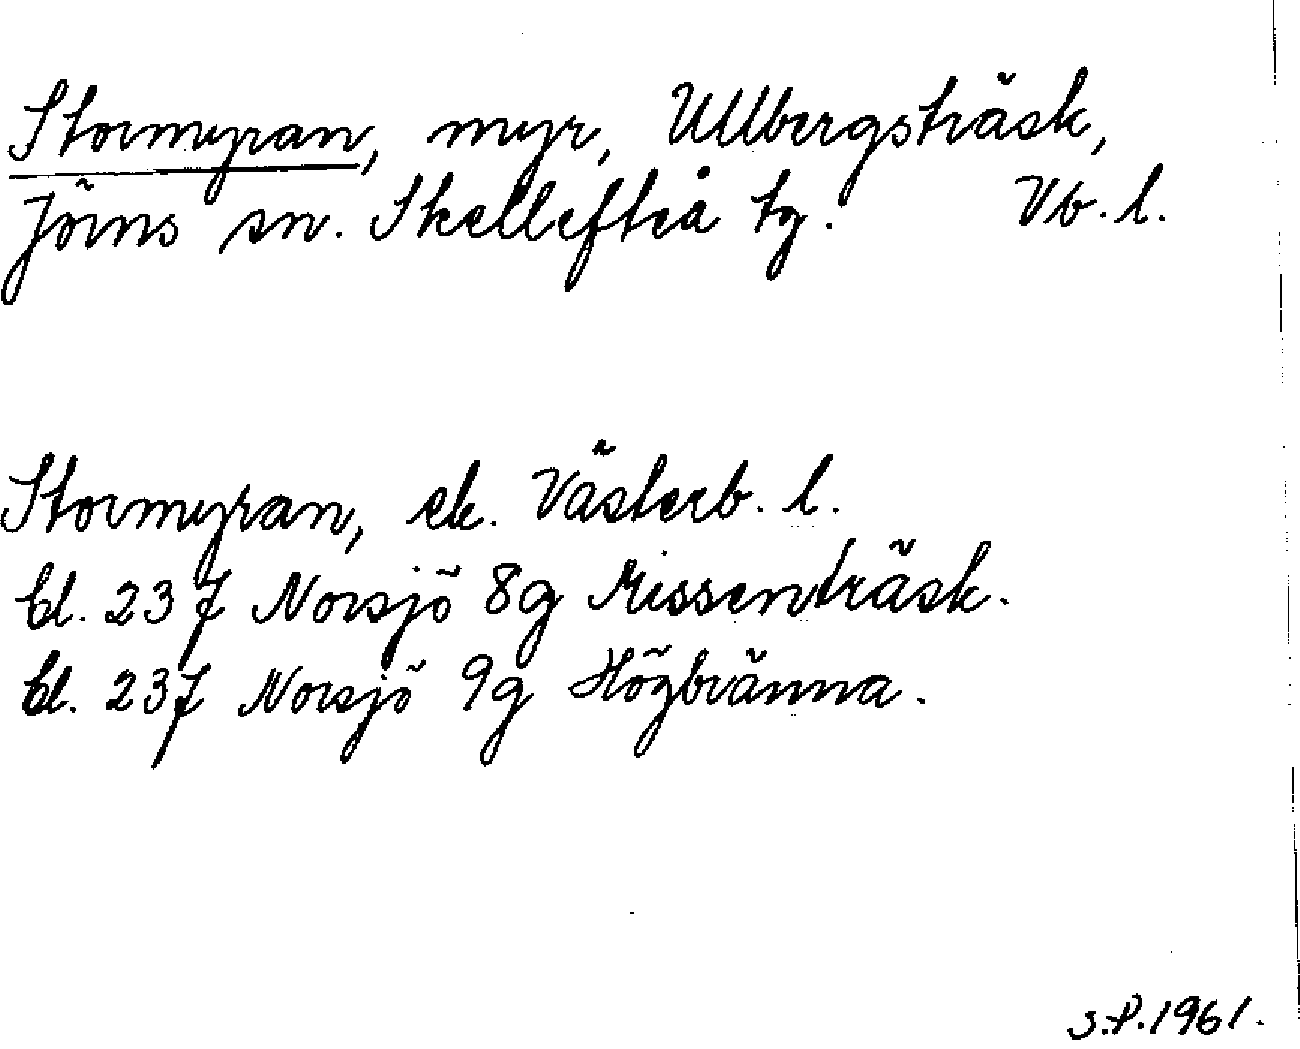 Stormyran, myr, Ullbergsträsk,
Jörns sn. Skellefteå tg. Vb. l.
Stormyran, ek. Västerb. l.
bl. 237 Norsjö 8g Missenträsk.
bl. 237 Norsjö 9g Högbränna.
S.P. 1961.